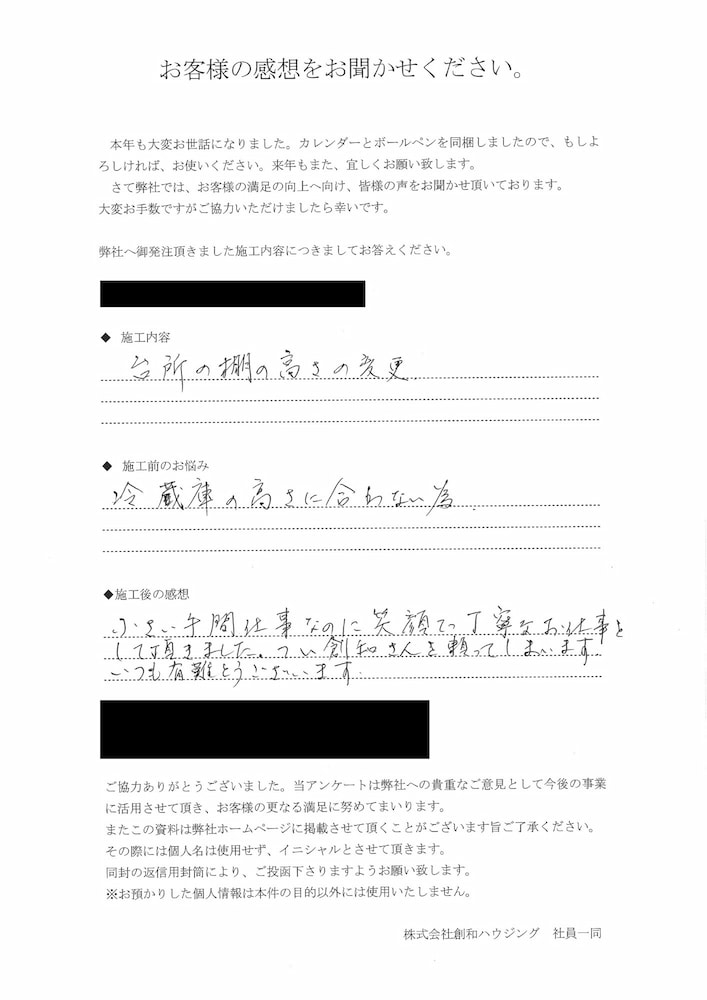 お客様の感想をお聞かせください。
本年も大変お世話になりました。カレンダーとボールペンを同梱しましたので、もしよ
ろしければ、お使いください。来年もまた、宜しくお願い致します。
さて弊社では、お客様の満足の向上へ向け、皆様の声をお聞かせ頂いております。
大変お手数ですがご協力いただけましたら幸いです。
弊社へ御発注頂きました施工内容につきましてお答えください。
◆ 施工内容
台所の棚の高さの変更
◆ 施工前のお悩み
冷蔵庫の高さに合わない為
◆施工後の感想
小さい手間仕事なのに笑顔で丁寧なお仕事を
して頂きました。つい創和さんを頼ってしまいます
いつも有難とうございます
ご協力ありがとうございました。当アンケートは弊社への貴重なご意見として今後の事業
に活用させて頂き、お客様の更なる満足に努めてまいります。
またこの資料は弊社ホームページに掲載させて頂くことがございます旨ご了承ください。
その際には個人名は使用せず、イニシャルとさせて頂きます。
同封の返信用封筒により、ご投函下さりますようお願い致します。
※お預かりした個人情報は本件の目的以外には使用いたしません。
株式会社創和ハウジング 社員一同